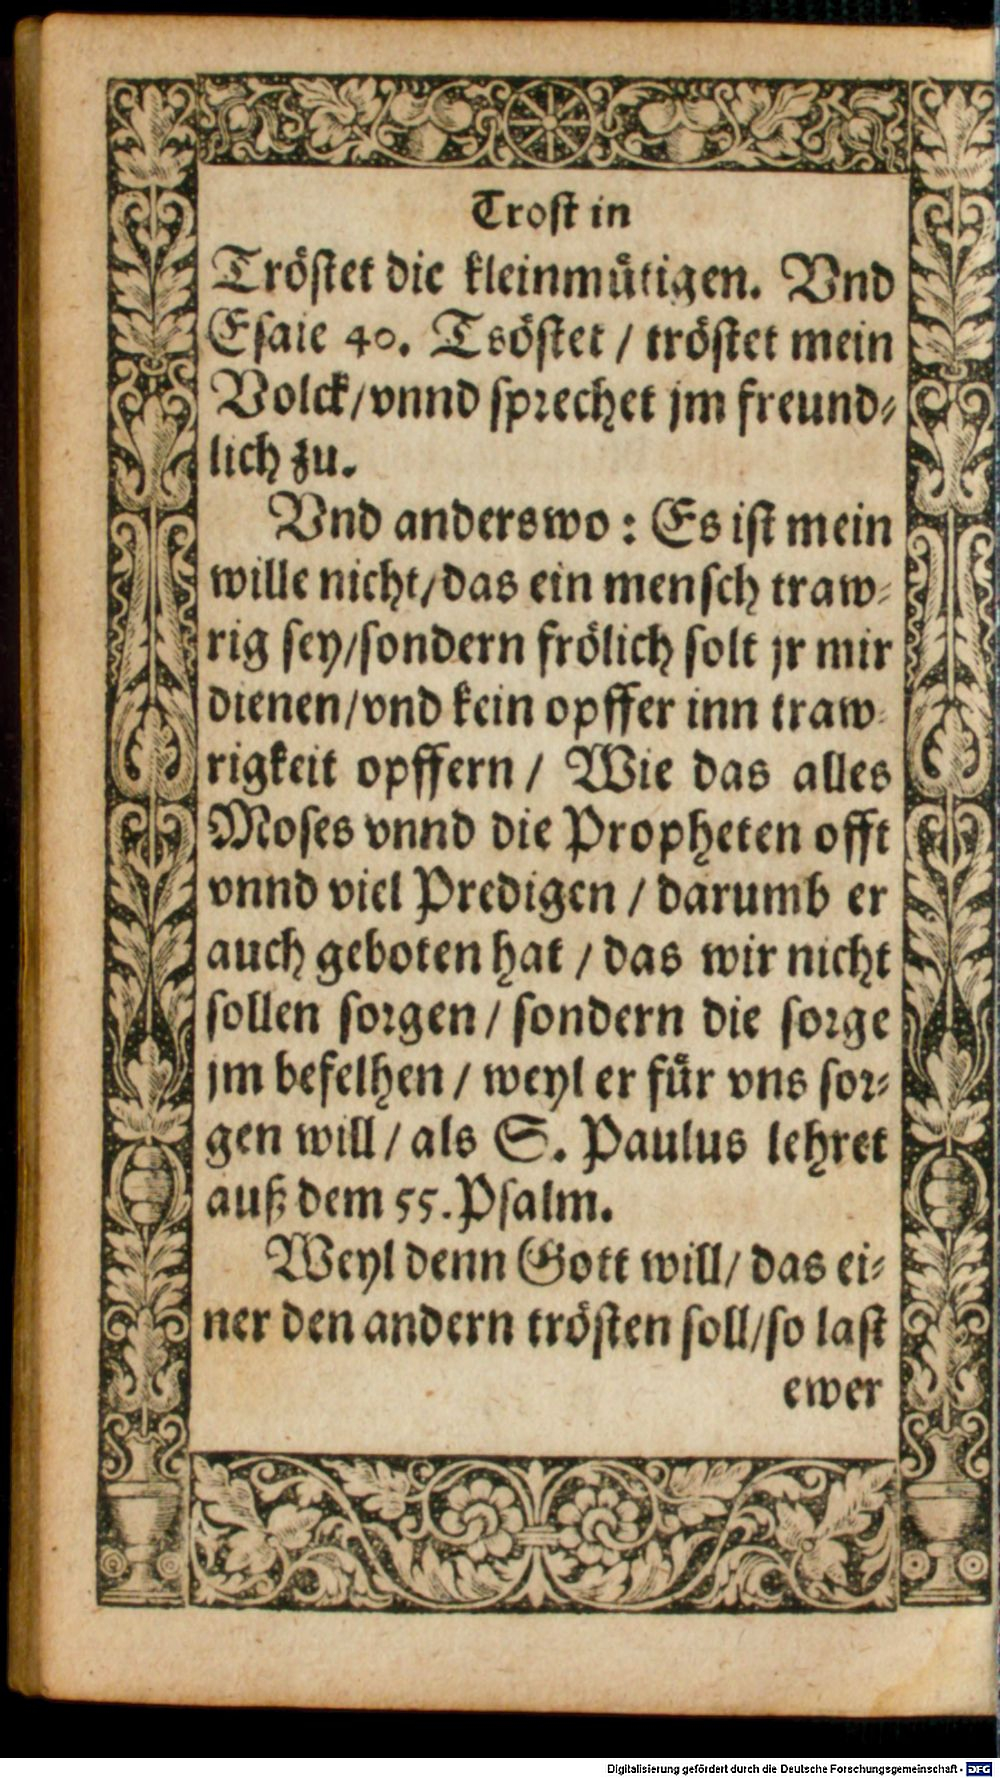 Trost in
Tröstet die kleinmütigen. Vnd
Esaie 40. Tsöstet / tröstet mein
Volck / vnnd sprechet jm freund-
lich zu.
Vnd anderswo : Es ist mein
wille nicht / das ein mensch traw-
rig sey / sondern frölich solt jr mir
dienen / vnd kein opffer inn traw-
rigkeit opffern / Wie das alles
Moses vnnd die Propheten offt
vnnd viel Predigen / darumb er
auch geboten hat / das wir nicht
sollen sorgen / sondern die sorge
jm befelhen / weyl er für vns sor-
gen will / als S. Paulus lehret
auß dem 55. Psalm.
Weyl denn Gott will / das ei-
ner den andern trösten soll / so last
ewer
Digitalisierung gefördert durch die Deutsche Forschungsgemeinschaft - DFG